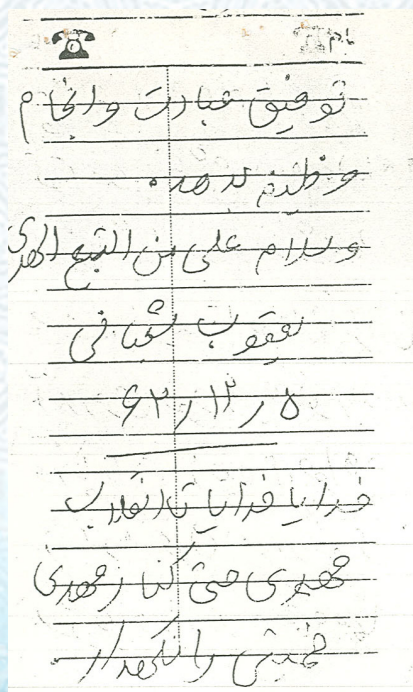 نام
توفیق عبادت وانجام
وظیفه بدهد.
وسلام علی من التبع الهدی
یعقوب شعبانی
۵ ر ۱۲ ر ۶۲
خدایا خدایا تا انقلاب
مهدی حتی کنار مهدی
خمینی را نگهدار